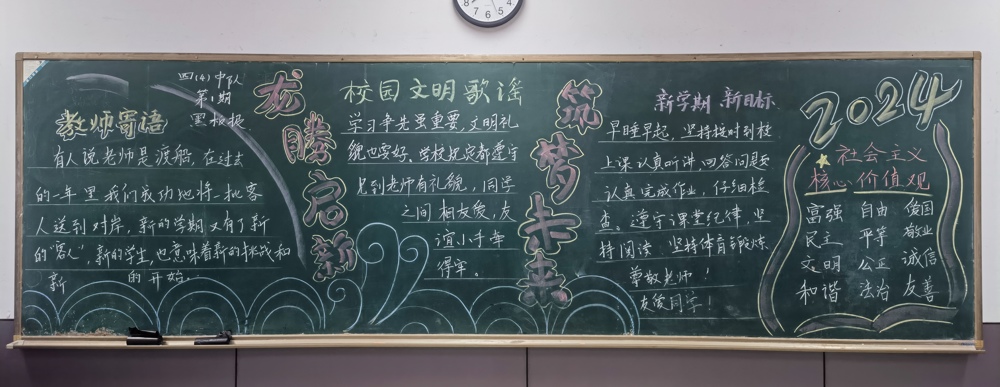 四(4)中队
第1期
黑板报
教师寄语
有人说老师是渡船,在过去
的一年里我们成功地将一批客
人送到对岸,新的学期又有了新
的"客人",新的学生,也意味着新的挑战和
新的开始。
龙腾启新
校园文明歌谣
学习争先虽重要,文明礼
貌也要好、学校规定都遵守
见到老师有礼貌,同学
之间相友爱,友
谊小手牵
得牢。
筑梦未来
新学期 新目标
早睡早起,坚持按时到校
上课认真听讲,回答问题
认真完成作业,仔细检
查。遵守课堂纪律,坚
持阅读 坚持体育锻炼
尊敬老师!
友爱同学!
2024
社会主义
核心价值观
富强 自由 爱国
民主 平等 敬业
文明 公正 诚信
和谐 法治 友善
8 7 6 5 4